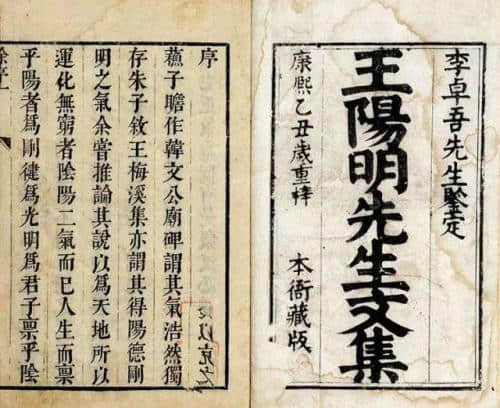 李卓吾先生鑒定
王陽明先生文集
康熙乙丑歲重梓
本衙藏版
序
蘇子瞻作韓文公廟碑謂其氣浩然獨
存朱子敘王梅溪集亦謂其得陽德剛
明之氣余嘗推論其說以為天地所以
運化無窮者陰陽二氣而已人生而禀
乎陽者爲剛健爲光明爲君子禀乎陰